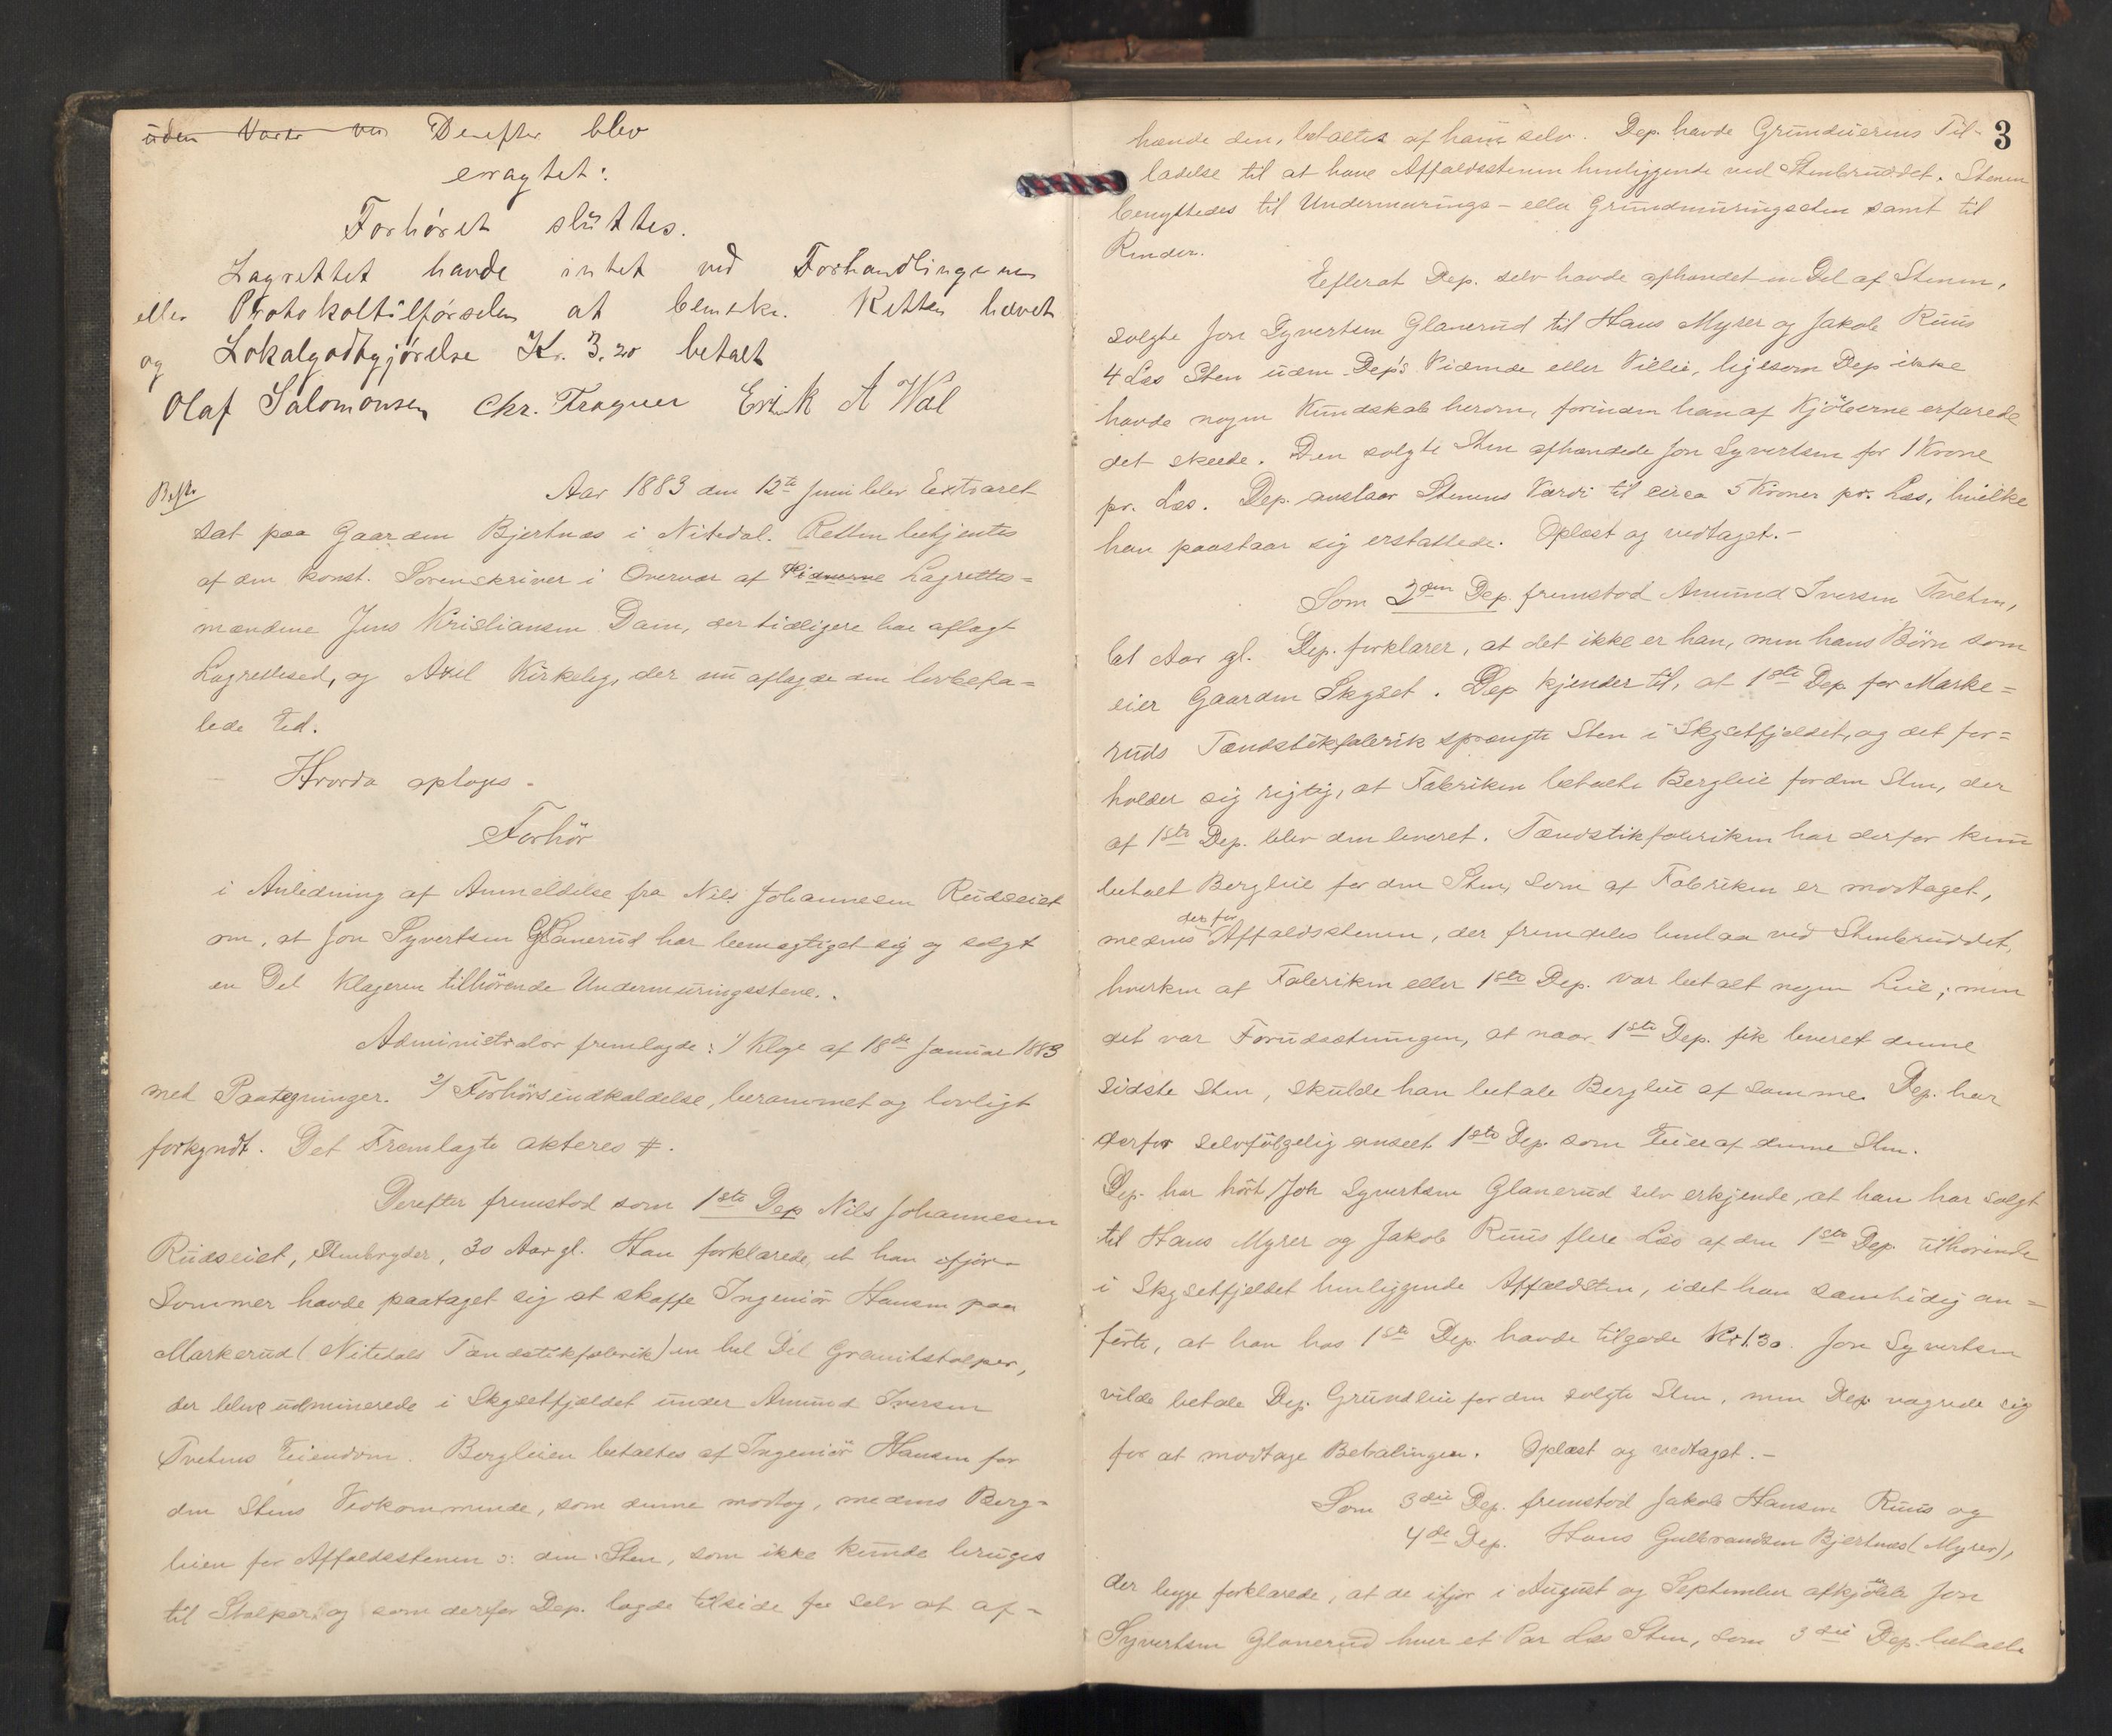 uden Varer ved Derefter blev
eragtet:
Forhøret slüttes.
Lagrettet havde intet ved Forhandlingerne
eller Protokoltilførselen at bemerke. Retten hævet
og Lokalgodtgjørelse Kr. 3.20 betalt
Olaf Salomonsen Chr. Fragner Erik A Wal
Aar 1883 den 12te Juni blev Extraret
sat paa Gaarden Bjertnæs i Nitedal. Retten betjentes
af den konst. Sorenskriver i Overvær af Vidnerne Lagrettes=
mændene Jens Kristiansen Dam, der tidligere har aflagt
Lagrettesed, og Axel Kirkeby, der nu aflagde den lovbefa=
lede Ed.
Hvorda optoges -
Forhör
i Anledning af Anmeldelse fra Nils Johannesen Rudseiet
om, at Jon Syvertsen Glanerud har bemægtiget sig og solgt
en Del Klageren tilhörende Undermuringsstene.
Administrator fremlagde: 1/ Klage af 18de Januar 1883
med Paategninger. 2/ Forhörsindkaldelse, berammet og lovligt
forkyndt. Det Fremlagte akteres #.
Derefter fremstod som 1ste Dep Nils Johannesen
Rudseiet, Stenbryder, 30 Aar gl. Han forklarede, at han ifjor
Sommer havde paataget sig at skaffe Ingeniör Hansen paa
Markerud (Nitedals Tændstikfabrik) en hel Del Granitstolper,
der bleve udminerede i Skysetfjeldet under Amund Iversen
Tvetens Eiendom. Bergleien betaltes af Ingeniör Hansen for
den Stens Vedkommende, som denne modtog, medens Berg=
leien for Affaldsstenen ɔ: den Sten, som ikke kunde bruges
til Stolper og som derfor Dep. lagde tilside for selv at af=
3
hænde den, betaltes af ham selv. Dep. havde Grundeierens Til=
ladelse til at have Affaldsstenen henliggende ved Stenbruddet. Stenen
benyttedes til Undermurings- eller Grundmuringssten samt til
Render.
Efterat Dep. selv havde afhændet en Del af Stenen,
solgte Jon Syvertsen Glanerud til Hans Myrer og Jakob Ruus
4 Læs Sten uden Dep's Vidende eller Villie, ligesom Dep ikke
havde nogen Kundskab herom, forinden han af Kjöberne erfarede
det skede. Den solgte Sten afhændede Jon Syvertsen for 1 Krone
pr. Læs. Dep. anslaar Stenens Værdi til circa 5 Kroner pr. Læs, hvilke
han paastaar sig erstattede. Oplæst og vedtaget.-
Som 2den Dep. fremstod Amund Iversen Tveten,
61 Aar gl. Dep. forklarer, at det ikke er han, men hans Börn som
eier Gaarden Skyset. Dep kjender til, at 1ste Dep for Marke=
ruds Tændstikfabrik sprængte Sten i Skysetfjeldet, og det for=
holder sig rigtig, at Fabriken betalte Bergleie for den Sten, der
af 1ste Dep. blev den leveret. Tændstikfabriken har derfor kun
betalt Bergleie for den Sten, som af Fabriken er modtaget,
medens der for Affaldsstenen, der fremdeles henlaa ved Stenbruddet,
hverken af Fabriken eller 1ste Dep. var betalt nogen Leie; men
det var Forudsætningen, at naar 1ste Dep. fik leveret denne
sidste Sten, skulde han betale Bergleie af samme. Dep. har
derfor selvfölgelig anseet 1ste Dep. som Eier af denne Sten.
Dep. har hört Jon Syvertsen Glanerud selv erkjende, at han har solgt
til Hans Myrer og Jakob Ruus flere Læs af den 1ste Dep. tilhörende
i Skysetfjeldet henliggende Affaldsten, idet han samtidig an=
förte, at han hos 1ste Dep. havde tilgode Kr 1.30. Jon Syvertsen
vilde betale Dep. Grundleie for den solgte Sten, men Dep. vægrede sig
for at modtage Betalingen. Oplæst og vedtaget.-
Som 3die Dep. fremstod Jakob Hansen Ruus og
4de Dep. Hans Gulbrandsen Bjertnæs (Myrer),
der begge forklarede, at de ifjor i August og September afkjöbte Jon
Syvertsen Glanerud hver et Par Læs Sten, som 3die Dep. betalte